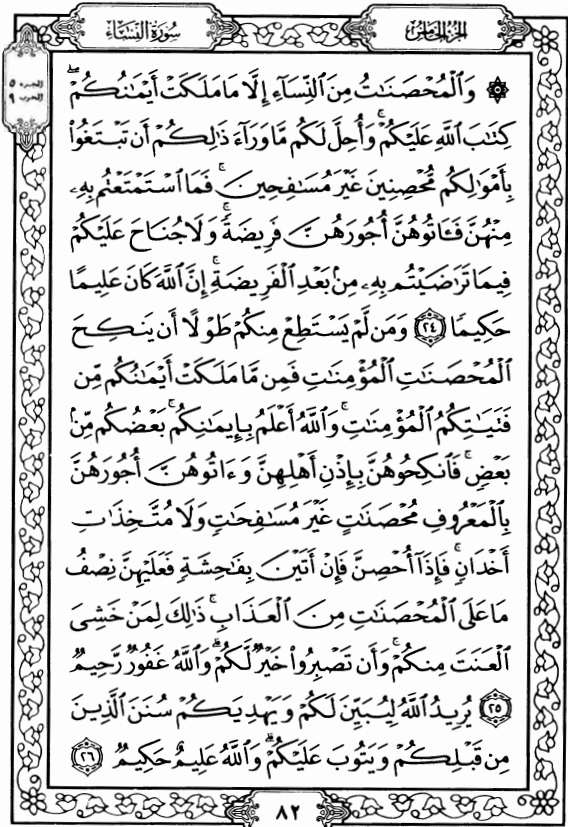 الجزء الخامس
سُورَةُ النِّسَاءِ
الجزء ٥
الحزب ٩
۞ وَالْمُحْصَنَٰتُ مِنَ النِّسَآءِ إِلَّا مَا مَلَكَتْ أَيْمَٰنُكُمْ ۖ
كِتَٰبَ اللَّهِ عَلَيْكُمْ ۚ وَأُحِلَّ لَكُم مَّا وَرَآءَ ذَٰلِكُمْ أَن تَبْتَغُوا۟
بِأَمْوَٰلِكُم مُّحْصِنِينَ غَيْرَ مُسَٰفِحِينَ ۚ فَمَا اسْتَمْتَعْتُم بِهِۦ
مِنْهُنَّ فَـَٔاتُوهُنَّ أُجُورَهُنَّ فَرِيضَةً ۚ وَلَا جُنَاحَ عَلَيْكُمْ
فِيمَا تَرَٰضَيْتُم بِهِۦ مِنۢ بَعْدِ الْفَرِيضَةِ ۚ إِنَّ اللَّهَ كَانَ عَلِيمًا
حَكِيمًا ٢٤ وَمَن لَّمْ يَسْتَطِعْ مِنكُمْ طَوْلًا أَن يَنكِحَ
الْمُحْصَنَٰتِ الْمُؤْمِنَٰتِ فَمِن مَّا مَلَكَتْ أَيْمَٰنُكُم مِّن
فَتَيَٰتِكُمُ الْمُؤْمِنَٰتِ ۚ وَاللَّهُ أَعْلَمُ بِإِيمَٰنِكُم ۚ بَعْضُكُم مِّنۢ
بَعْضٍ ۚ فَانكِحُوهُنَّ بِإِذْنِ أَهْلِهِنَّ وَءَاتُوهُنَّ أُجُورَهُنَّ
بِالْمَعْرُوفِ مُحْصَنَٰتٍ غَيْرَ مُسَٰفِحَٰتٍ وَلَا مُتَّخِذَٰتِ
أَخْدَانٍ ۚ فَإِذَآ أُحْصِنَّ فَإِنْ أَتَيْنَ بِفَٰحِشَةٍ فَعَلَيْهِنَّ نِصْفُ
مَا عَلَى الْمُحْصَنَٰتِ مِنَ الْعَذَابِ ۚ ذَٰلِكَ لِمَنْ خَشِىَ
الْعَنَتَ مِنكُمْ ۚ وَأَن تَصْبِرُوا۟ خَيْرٌ لَّكُمْ ۗ وَاللَّهُ غَفُورٌ رَّحِيمٌ
٢٥ يُرِيدُ اللَّهُ لِيُبَيِّنَ لَكُمْ وَيَهْدِيَكُمْ سُنَنَ الَّذِينَ
مِن قَبْلِكُمْ وَيَتُوبَ عَلَيْكُمْ ۗ وَاللَّهُ عَلِيمٌ حَكِيمٌ ٢٦
٨٢